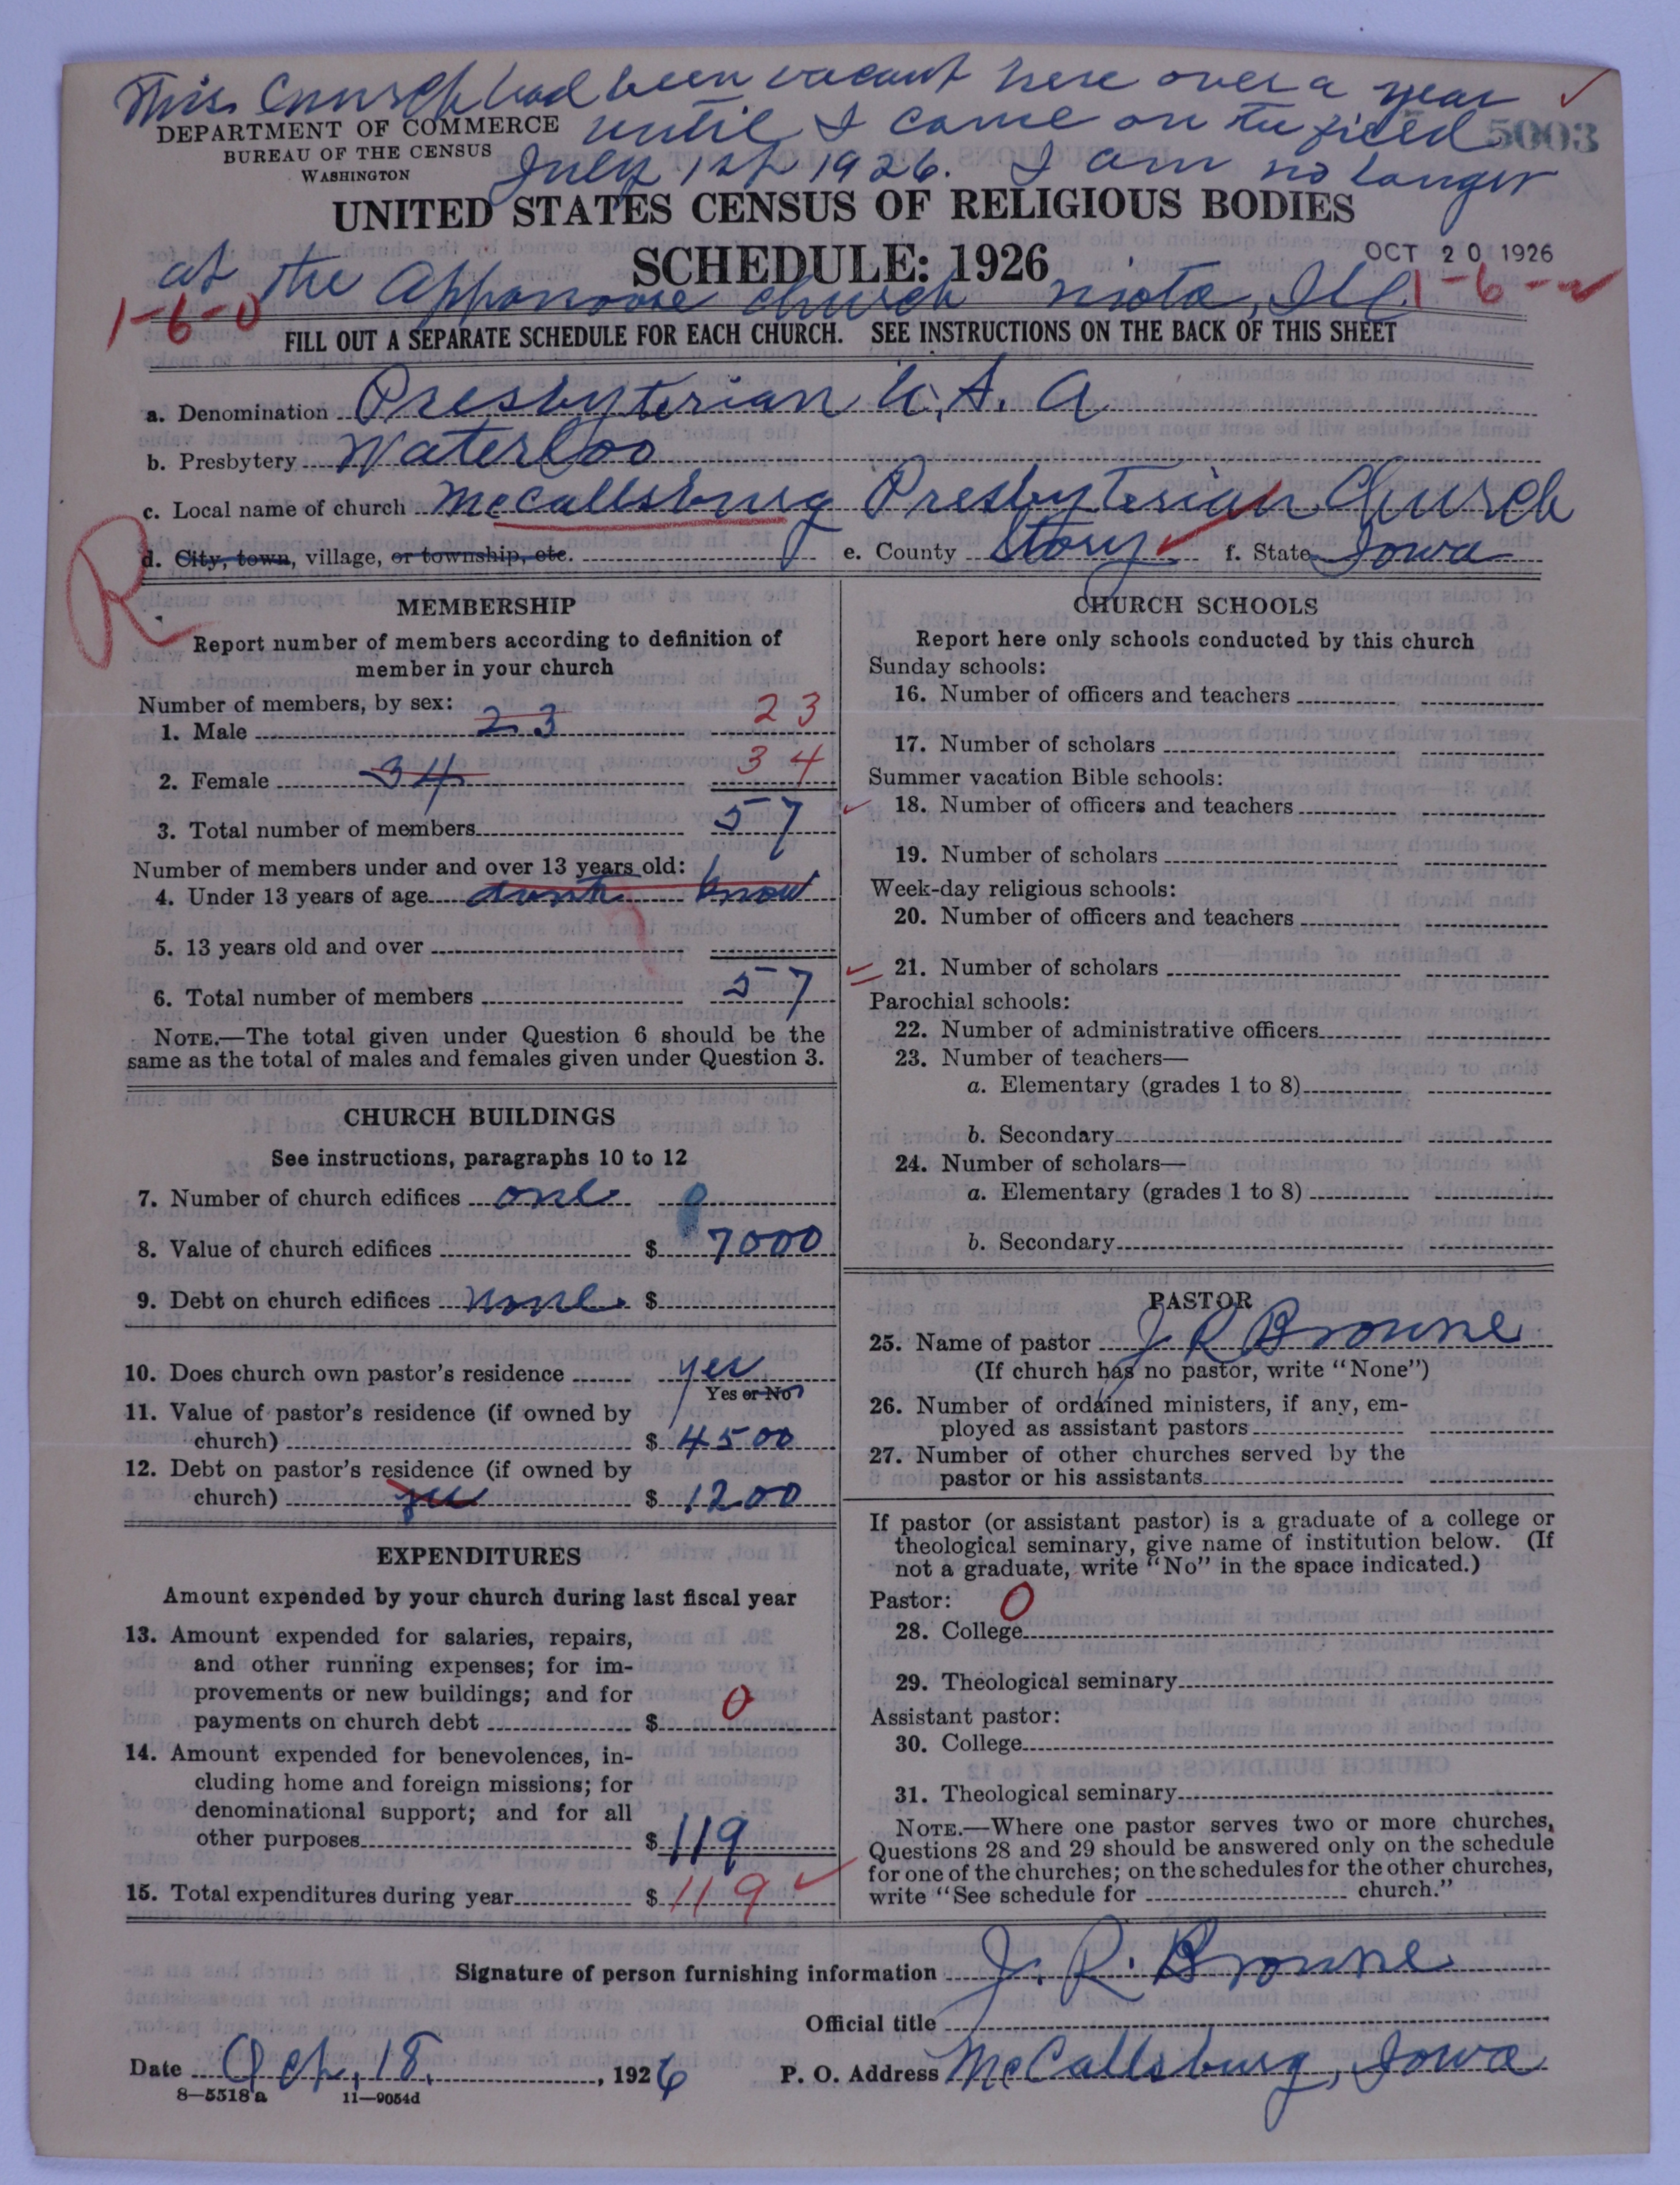 This Church had been vacant here over a year
DEPARTMENT OF COMMERCE until I came on the field 5003
BUREAU OF THE CENSUS
WASHINGTON July 1st 1926. I am no longer
UNITED STATES CENSUS OF RELIGIOUS BODIES
SCHEDULE: 1926 OCT 20 1926
at the Appanoose church Niota, Ill
1-6-0 1-6-
FILL OUT A SEPARATE SCHEDULE FOR EACH CHURCH. SEE INSTRUCTIONS ON THE BACK OF THIS SHEET
a. Denomination Presbyterian U.S.A
b. Presbytery Waterloo
c. Local name of church McCallsburg Presbyterian Church
d. City, town, village, or township, etc. e. County Story f. State Iowa
R
MEMBERSHIP
Report number of members according to definition of
member in your church
Number of members, by sex:
1. Male 23 23
2. Female 34 34
3. Total number of members 57
Number of members under and over 13 years old:
4. Under 13 years of age dont know
5. 13 years old and over
6. Total number of members 57
NOTE.—The total given under Question 6 should be the
same as the total of males and females given under Question 3.
CHURCH BUILDINGS
See instructions, paragraphs 10 to 12
7. Number of church edifices one
8. Value of church edifices $ 7000
9. Debt on church edifices none $
10. Does church own pastor's residence yes
Yes or No
11. Value of pastor's residence (if owned by
church) $ 4500
12. Debt on pastor's residence (if owned by
church) yes $ 1200
EXPENDITURES
Amount expended by your church during last fiscal year
13. Amount expended for salaries, repairs,
and other running expenses; for im-
provements or new buildings; and for
payments on church debt $ 0
14. Amount expended for benevolences, in-
cluding home and foreign missions; for
denominational support; and for all
other purposes $ 119
15. Total expenditures during year $ 119
CHURCH SCHOOLS
Report here only schools conducted by this church
Sunday schools:
16. Number of officers and teachers
17. Number of scholars
Summer vacation Bible schools:
18. Number of officers and teachers
19. Number of scholars
Week-day religious schools:
20. Number of officers and teachers
21. Number of scholars
Parochial schools:
22. Number of administrative officers
23. Number of teachers—
a. Elementary (grades 1 to 8)
b. Secondary
24. Number of scholars—
a. Elementary (grades 1 to 8)
b. Secondary
PASTOR
25. Name of pastor J R Browne
(If church has no pastor, write "None")
26. Number of ordained ministers, if any, em-
ployed as assistant pastors
27. Number of other churches served by the
pastor or his assistants
If pastor (or assistant pastor) is a graduate of a college or
theological seminary, give name of institution below. (If
not a graduate, write "No" in the space indicated.)
Pastor: 0
28. College
29. Theological seminary
Assistant pastor:
30. College
31. Theological seminary
NOTE.—Where one pastor serves two or more churches,
Questions 28 and 29 should be answered only on the schedule
for one of the churches; on the schedules for the other churches,
write "See schedule for church."
Signature of person furnishing information J. R. Browne
Official title
Date Oct. 18, 1926 P. O. Address McCallsburg, Iowa
8—5518 a 11—9054d